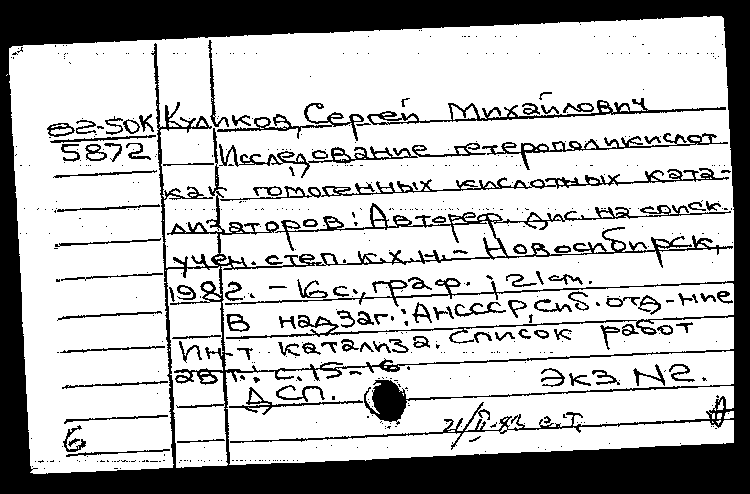 82-50К Куликов, Сергей Михайлович
5872 Исследование гетерополикислот
как гомогенных кислотных ката-
лизаторов: Автореф. дис. на соиск.
учен. степ. к.х.н. - Новосибирск,
1982. - 16 с., граф. ; 21 см.
В надзаг.: АН СССР, Сиб. отд-ние
Ин-т катализа. Список работ
авт.: с. 15-16.
ДСП. Экз. N2.
21/II-83 е.Т.
б